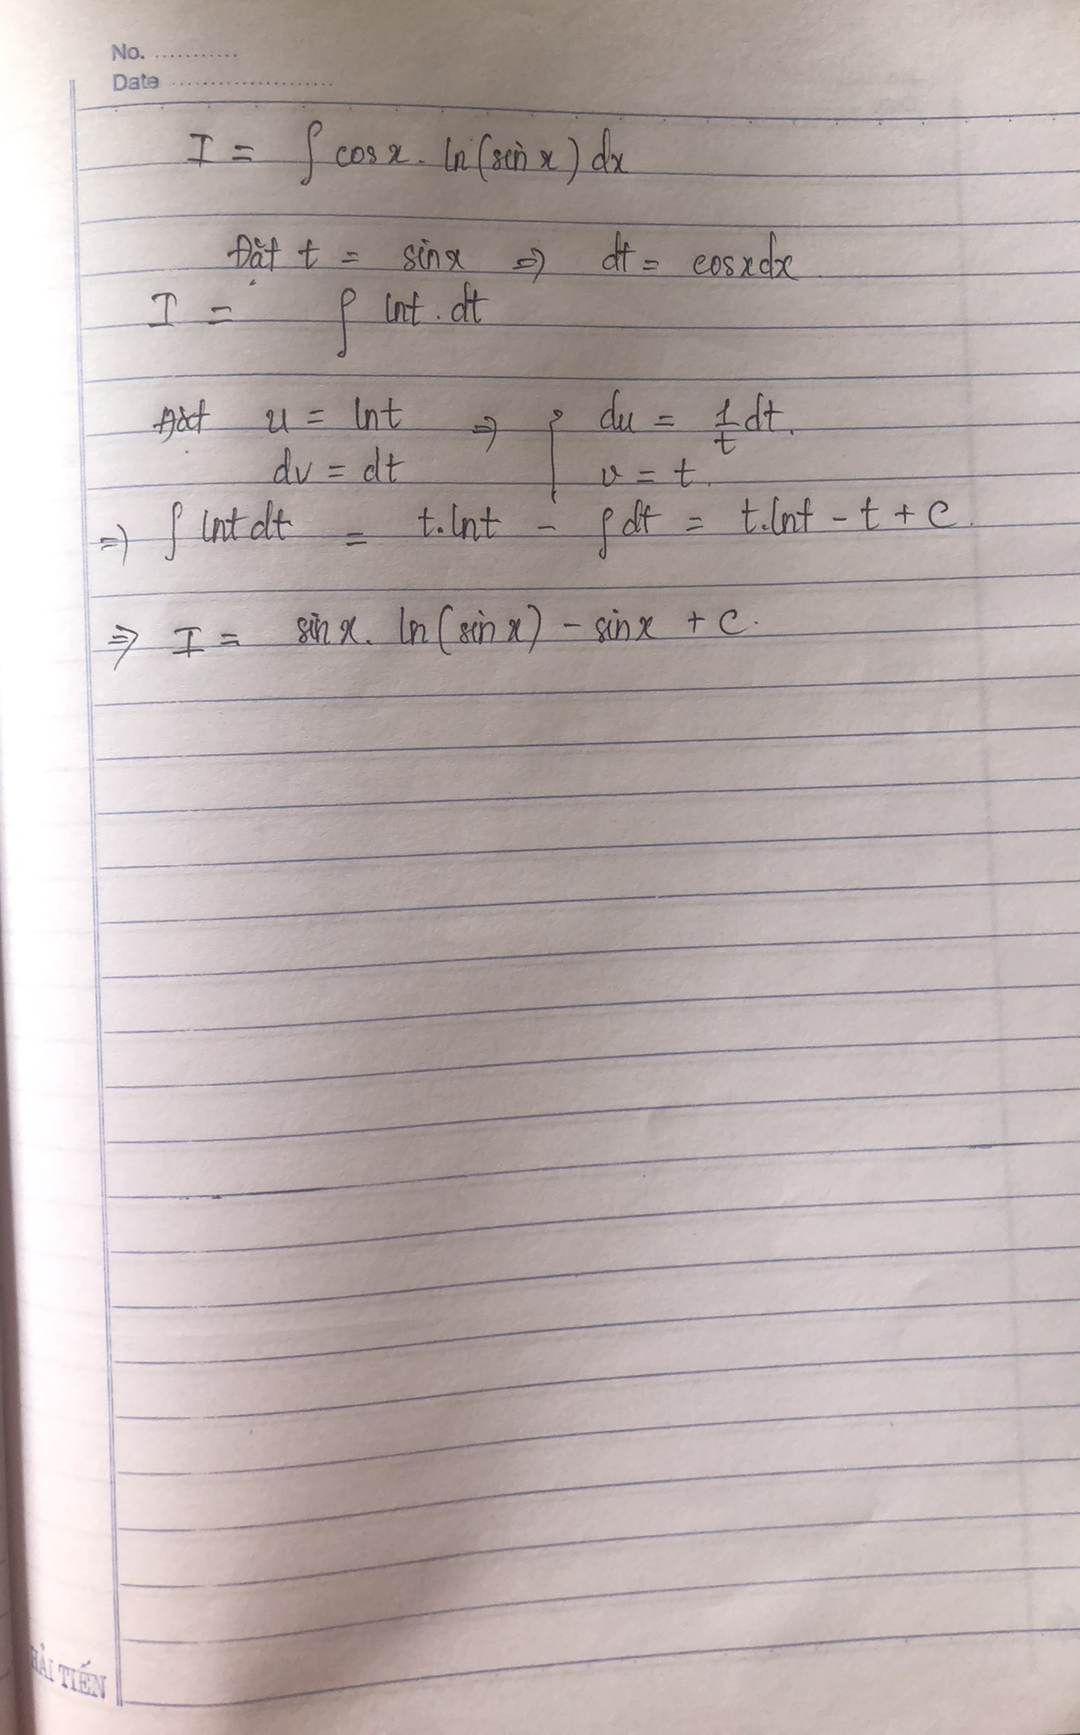 No. ...........
Date .....................
I = ∫ cosx. ln(sinx) dx
Đặt t = sinx => dt = cosxdx
I = ∫ lnt . dt
Đặt u = lnt => { du = 1/t dt.
dv = dt v = t.
=> ∫ lnt dt = t.lnt - ∫ dt = t.lnt - t + C.
=> I = sinx. ln(sinx) - sinx + C.
HẢI TIẾN